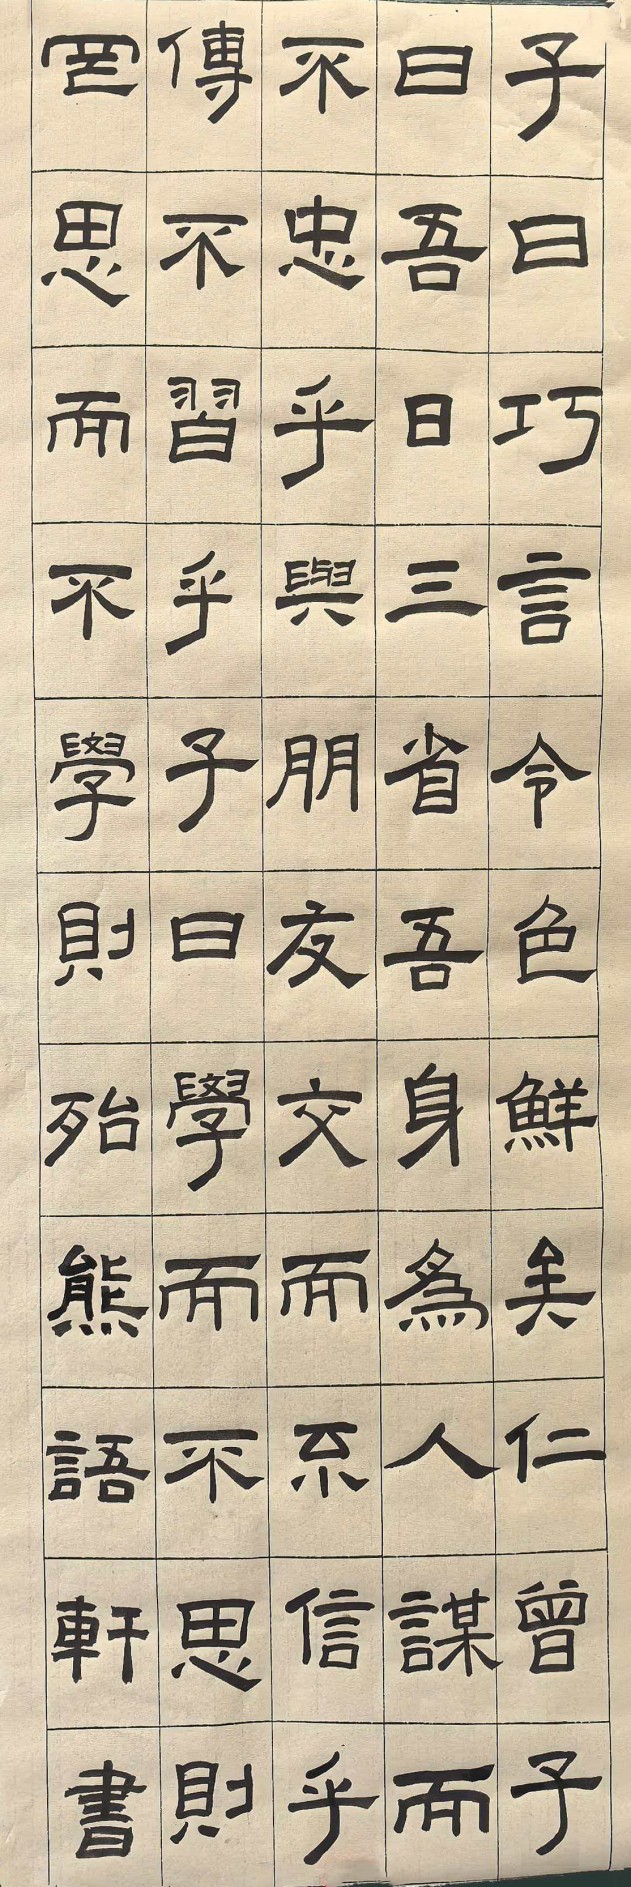 子曰巧言令色鮮矣仁曾子
曰吾日三省吾身為人謀而
不忠乎與朋友交而不信乎
傳不習乎子曰學而不思則
罔思而不學則殆熊語軒書